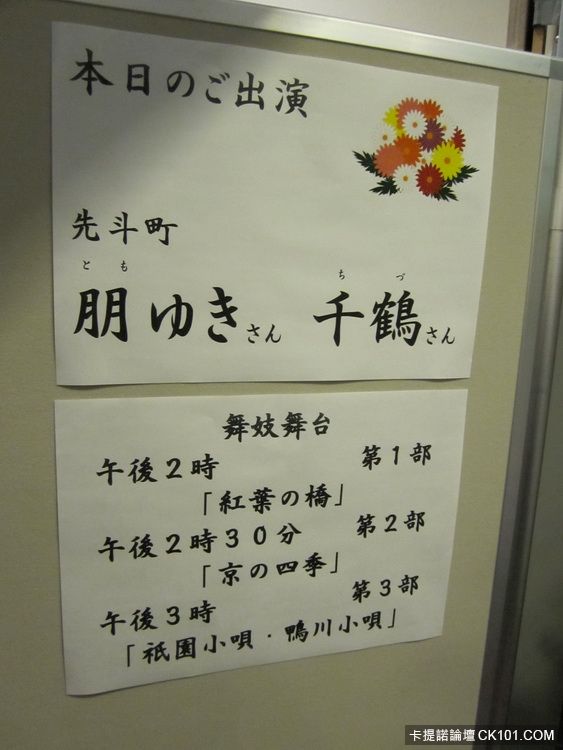 本日のご出演
先斗町
とも
ちづ
朋ゆきさん 千鶴さん
舞妓舞台
午後2時 第1部
「紅葉の橋」
午後2時30分 第2部
「京の四季」
午後3時 第3部
「祇園小唄・鴨川小唄」
卡提諾論壇 CK101.COM